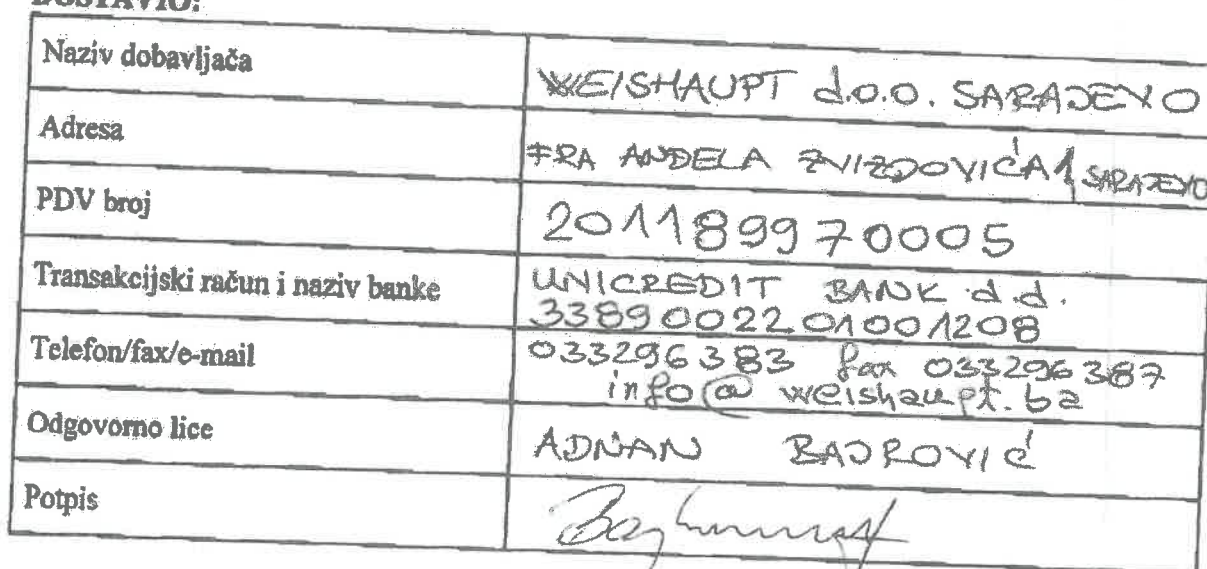 DOSTAVIO:
Naziv dobavljača
WEISHAUPT d.o.o. SARAJEVO
Adresa
FRA ANĐELA ZVIZDOVIĆA 1, SARAJEVO
PDV broj
201189970005
Transakcijski račun i naziv banke
UNICREDIT BANK d.d.
3389002201001208
Telefon/fax/e-mail
033296383 fax 033296387
info@weishaupt.ba
Odgovorno lice
ADNAN BAJROVIĆ
Potpis